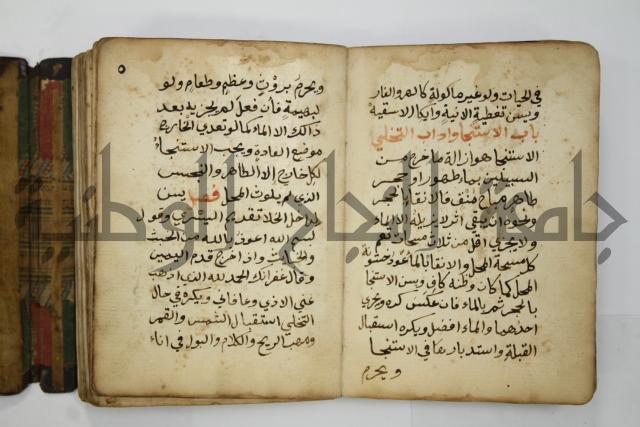 في الحياة ولو غير مأكولة كالهر والفار
ويسن تغطية الانية وايكا الاسقية
باب الاستنجا واداب التخلي
الاستنجا هو ازالة ما خرج من
السبيلين بماء طهور او حجر
طاهر مباح منقف فالانقا بالحجر
ونحوه ان يبقى اثر لا يزيله الا الماء
ولا يجزي اقل من ثلاث مسحات تعم
كل مسحة المحل والانقا بالماء عود خشونة
المحل كما كان وظنه كاف ويسن الاستنجا
بالحجر ثم بالماء فان عكس كره ويجزي
احدهما والماء افضل ويكره استقبال
القبلة واستدبارها في الاستنجا
ويحرم
٥
ويحرم بروث وعظم وطعام ولو
لبهيمة فان فعل لم يجزيه بعد
ذالك الا الماء كما لو تعدى الخارج
موضع العادة ويجب الاستنجا
لكل خارج الا الطاهر والنجس
الذي لم يلوث المحل فصل يسن
لداخل الخلا تقديم اليسرى وقول
بسم الله اعوذ بالله من الخبث
والخبائث واذا خرج قدم اليمين
وقال غفرانك الحمد لله الذي اذهب
عني الاذى وعافاني ويكره في حال
التخلي استقبال الشمس والقمر
ومهب الريح والكلام والبول في اناء
جامعة النجاح الوطنية